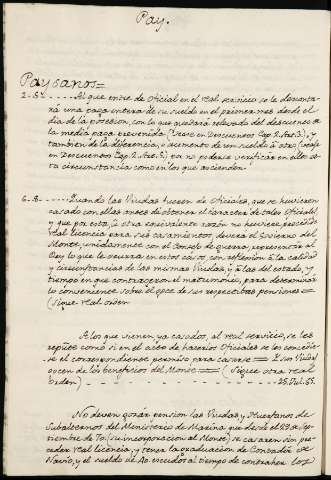 Pay.
Paysanos =
2.-5.- - - - - Al que entre de Oficial en el real servicio se le descontará
una paga entera de su sueldo en el primer mes desde el
dia de la posesion, con lo que quedará relevado del descuento de
la media paga prevenida (Vease en Descuentos Cap. 2. Art. 3.) y
tambien de la diferencia, o aumento de un sueldo á otro (vease
en Descuentos Cap. 2. Art. 3.) por no poderse verificar en ellos esta
circunstancia como en los que ascienden.
6.-8.- - - - - Quando las Viudas fuesen de Oficiales, que se huviesen
casado con ellas antes de obtener el caracter de tales Oficiales,
y que por esta, ú otra equivalente razon no huviese precedido
real licencia para sus casamientos, deverá el Govierno del
Monte, unidamente con el Consejo de guerra, representar al
Rey lo que le ocurra en estos casos, con reflexion á la calidad
y circunstancias de las mismas Viudas, y á las del estado, y
tiempo en que contrageron el matrimonio, para determinar
lo conveniente sobre el goce de sus respectivas pensiones =
(Sigue real orden
A los que vienen ya casados, al real servicio, se les
repute como si en el acto de hacerlos Oficiales se les concediese
el correspondiente permiso para casarse = y sus Viudas
gocen de los beneficios del Monte = (Sigue otra real
orden) - - - - - - - - - - 25. Jul. 65.
No deven gozar pension las Viudas, y Huerfanos de
Subalternos del Ministerio de Marina que desde el 29 de Septiembre
de 70. (su incorporacion al Monte) se casaren sin preceder
real licencia, y tener la graduacion de Contador de
Navio, y el sueldo de 40. escudos al tiempo de contraher los